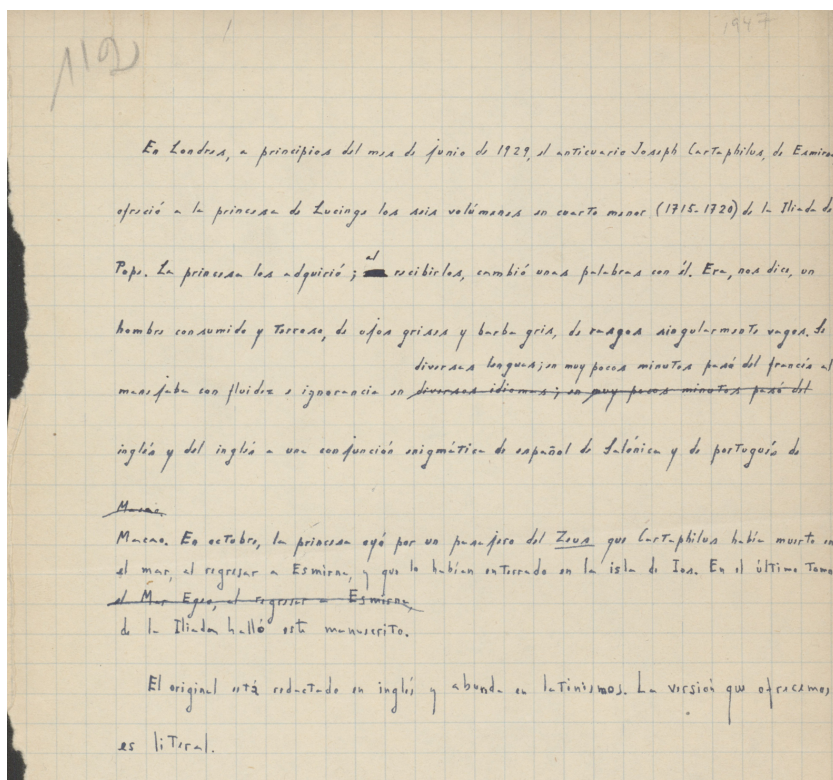 112
1947
En Londres, a principios del mes de junio de 1929, el anticuario Joseph Cartaphilus, de Esmirna
ofreció a la princesa de Lucinge los seis volúmenes en cuarto menor (1715-1720) de la Ilíada de
al
Pope. La princesa los adquirió; recibirlos, cambió unas palabras con él. Era, nos dice, un
hombre consumido y terroso, de ojos grises y barba gris, de rasgos singularmente vagos. Se
diversas lenguas; en muy pocos minutos pasó del francés al
manejaba con fluidez e ignorancia en diversos idiomas; en muy pocos minutos pasó del
inglés y del inglés a una conjunción enigmática de español de Salónica y de portugués de
Macao
Macao. En octubre, la princesa oyó por un pasajero del Zeus que Cartaphilus había muerto en
el mar, al regresar a Esmirna, y que lo habían enterrado en la isla de Ios. En el último tomo
el Mar Egeo, al regresar a Esmirna,
de la Ilíada halló este manuscrito.
El original está redactado en inglés y abunda en latinismos. La versión que ofrecemos
es literal.